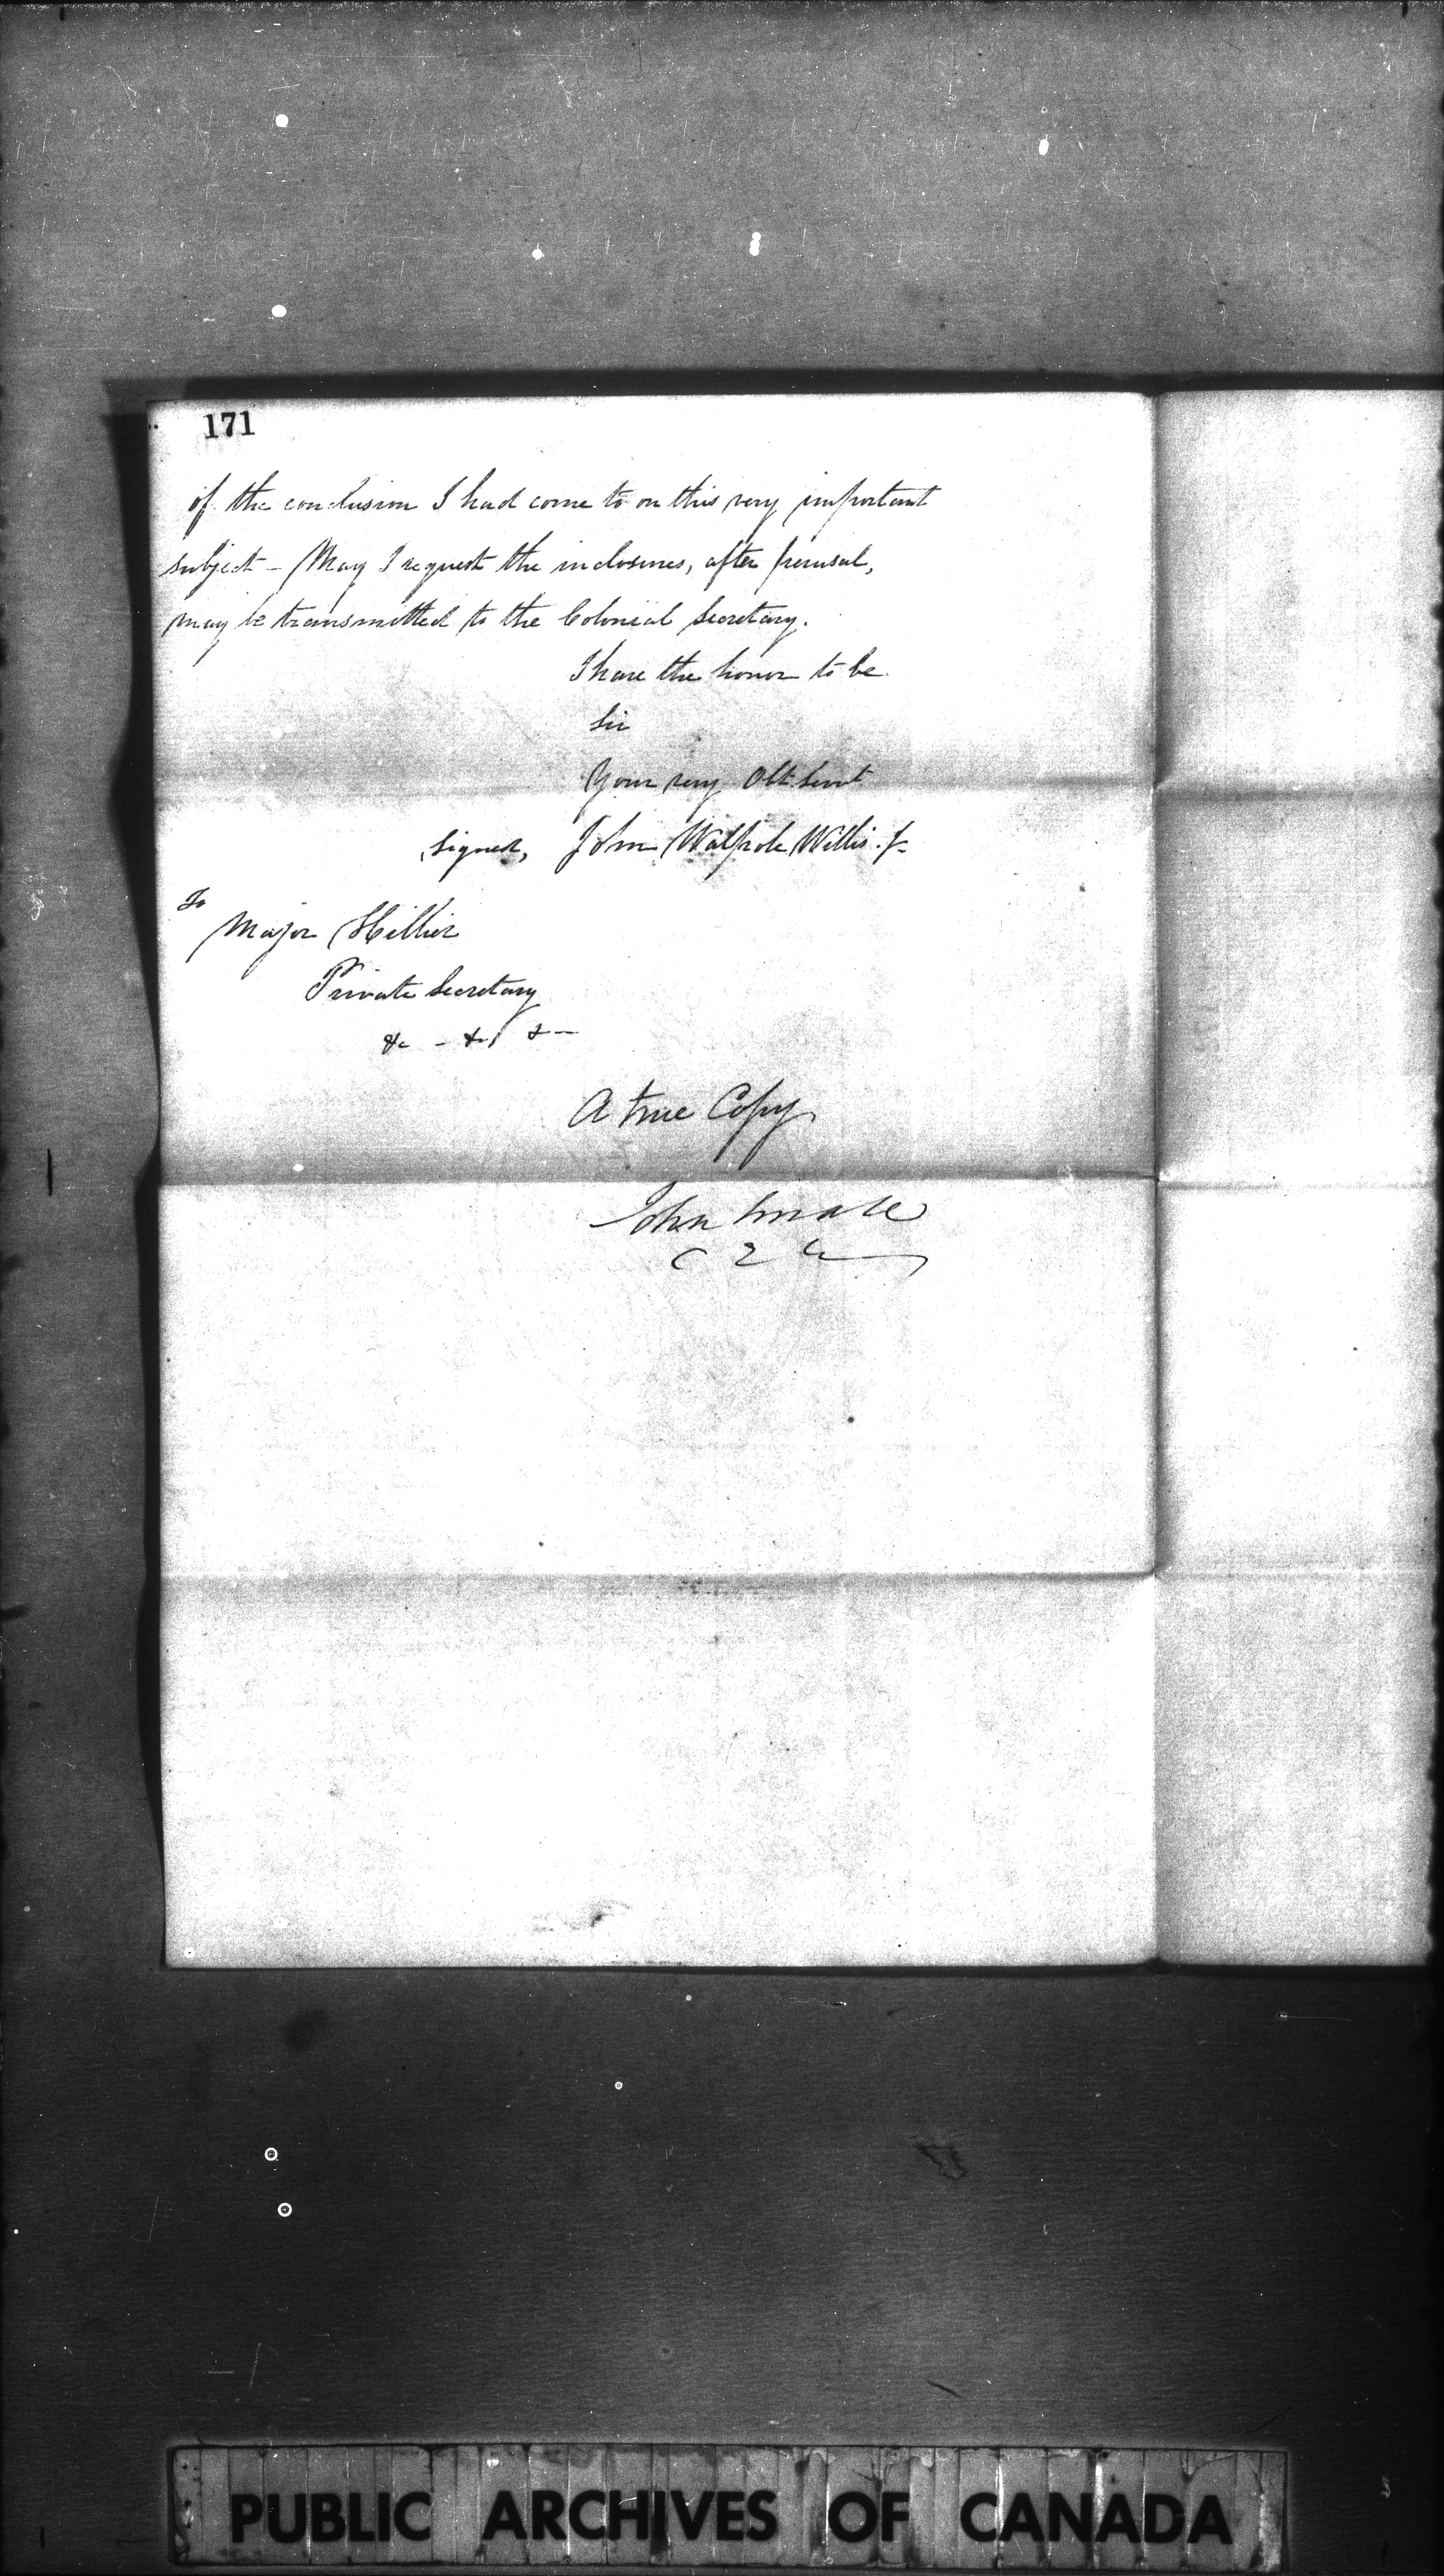 171
of the conclusion I had come to on this very important
subject - May I request the inclosures, after perusal,
may be transmitted to the Colonial Secretary.
I have the honor to be
Sir
Your very Obt Servt
signed, John Walpole Willis. J.
To
Major Hillier
Private Secretary
&c - &c &-
A true Copy
John Small
C E C
PUBLIC ARCHIVES OF CANADA